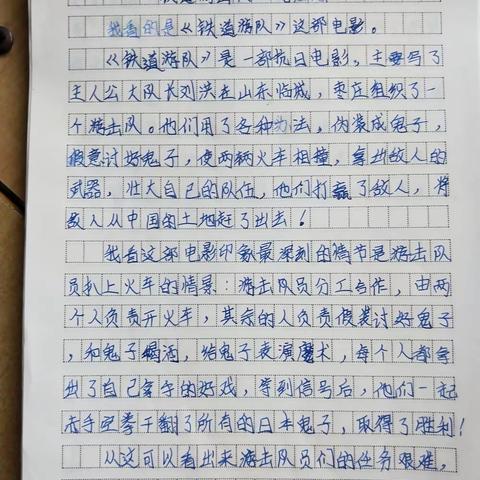 我看的是《铁道游队》这部电影。
《铁道游队》是一部抗日电影，主要写了
主人公大队长刘洪在山东临城，枣庄组织了一
个游击队。他们用了各种办法，伪装成鬼子，
假意讨好鬼子，使两辆火车相撞，拿出敌人的
武器，壮大自己的队伍，他们打赢了敌人，将
敌人从中国的土地赶了出去！
我看这部电影印象最深刻的情节是游击队
员扒上火车的情景：游击队员分工合作，由两
个人负责开火车，其余的人负责假装讨好鬼子
，和鬼子喝酒，给鬼子表演魔术，每个人都拿
出了自己拿手的好戏，等到信号后，他们一起
赤手空拳干翻了所有的日本鬼子，取得了胜利！
从这可以看出来游击队员们的任务艰难，